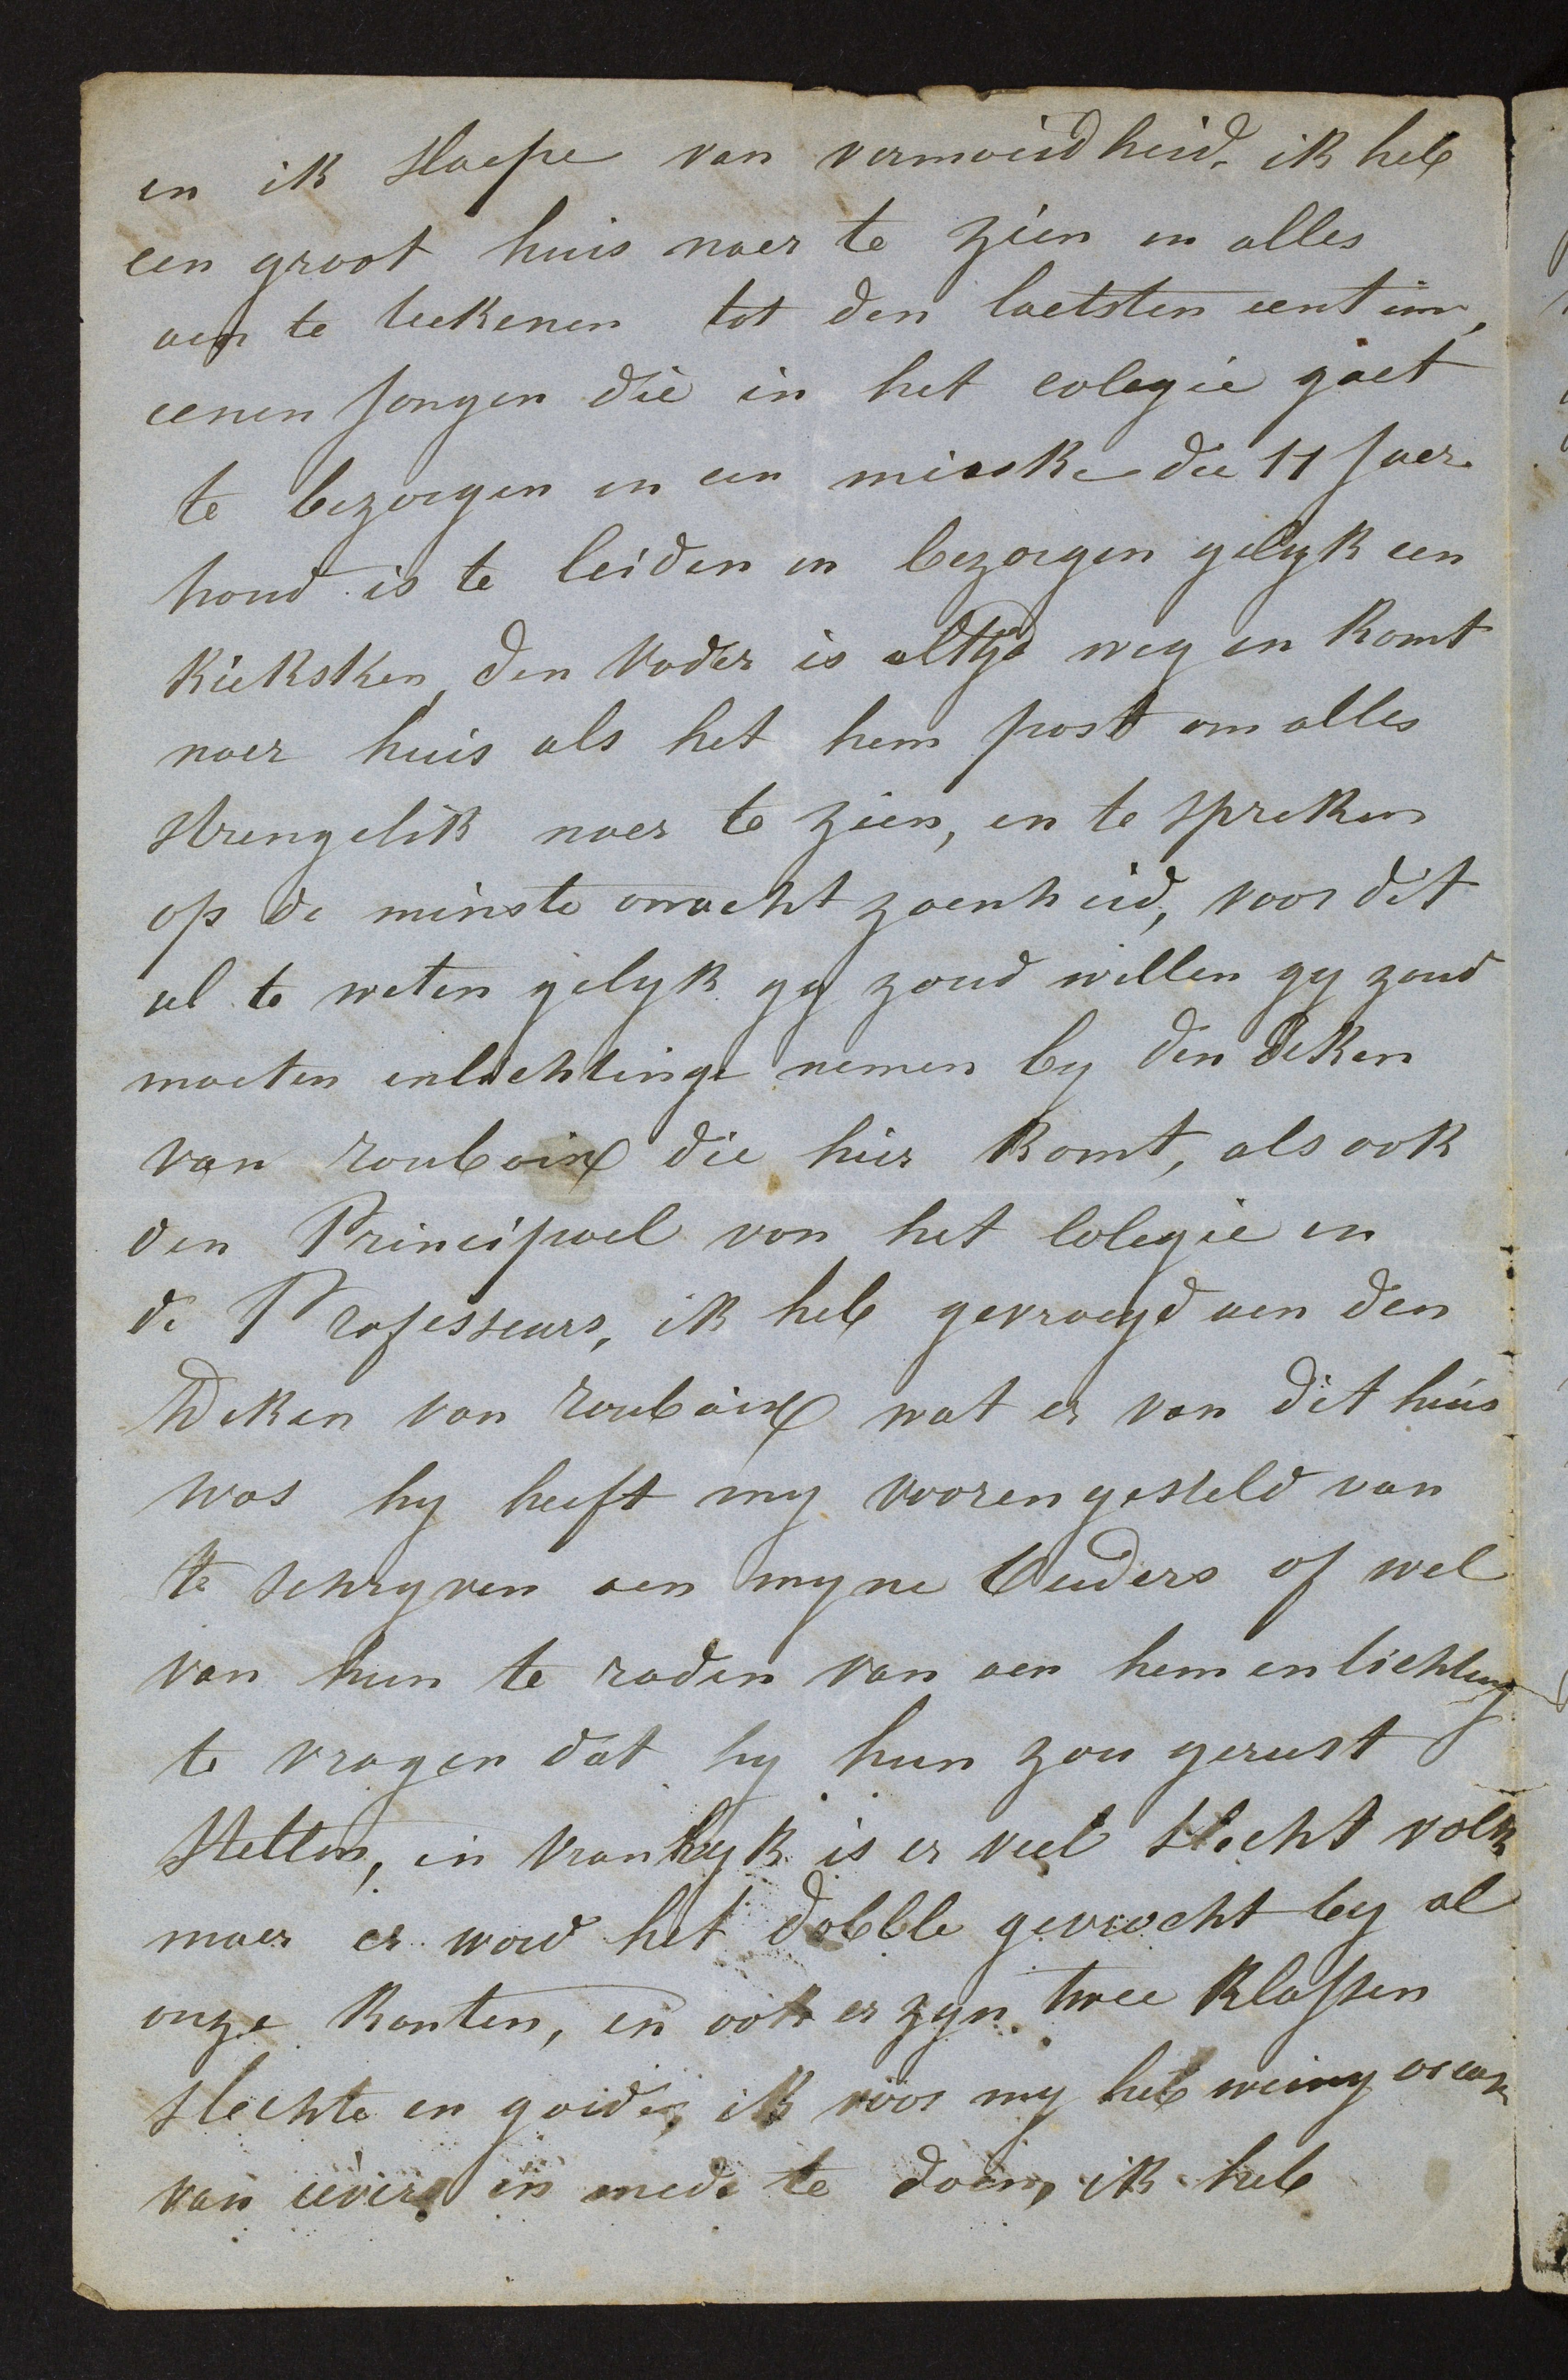 en ik slaepe van vermoeidheid. ik heb
een groot huis naer te zien en alles
aen te teekenen tot den laetsten centim,
eenen jongen die in het colegie gaet
te bezorgen en een misske die 11 jaer
houd is te leiden en bezorgen gelyk een
kieksken, den vader is altyd weg en komt
naer huis als het hem past om alles
strengelik naer te zien, en te spreken
op de minste onachtzaenheid, voor dit
al te weten gelyk gy zoud willen gy zoud
moeten enlichtinge nemen by den deken
van roubaix die hier komt, als ook
den Principael van het Colegie en
de Professeurs, ik heb gevraegd aen den
Deken van roubaix wat er van dit huis
was hy heeft my voorengesteld van
te schryven aen myne Ouders of wel
van hun te raden van aen hem enlichting
te vragen dat hy hun zou gerust
stellen, in vrankryk is er veel slecht volk
maer er word het dobble gevrocht by al
onze kanten, en ook er zyn twee klassen
slechte en goide, ik voor my heb weinig
van ievers in mede te doen, ik heb